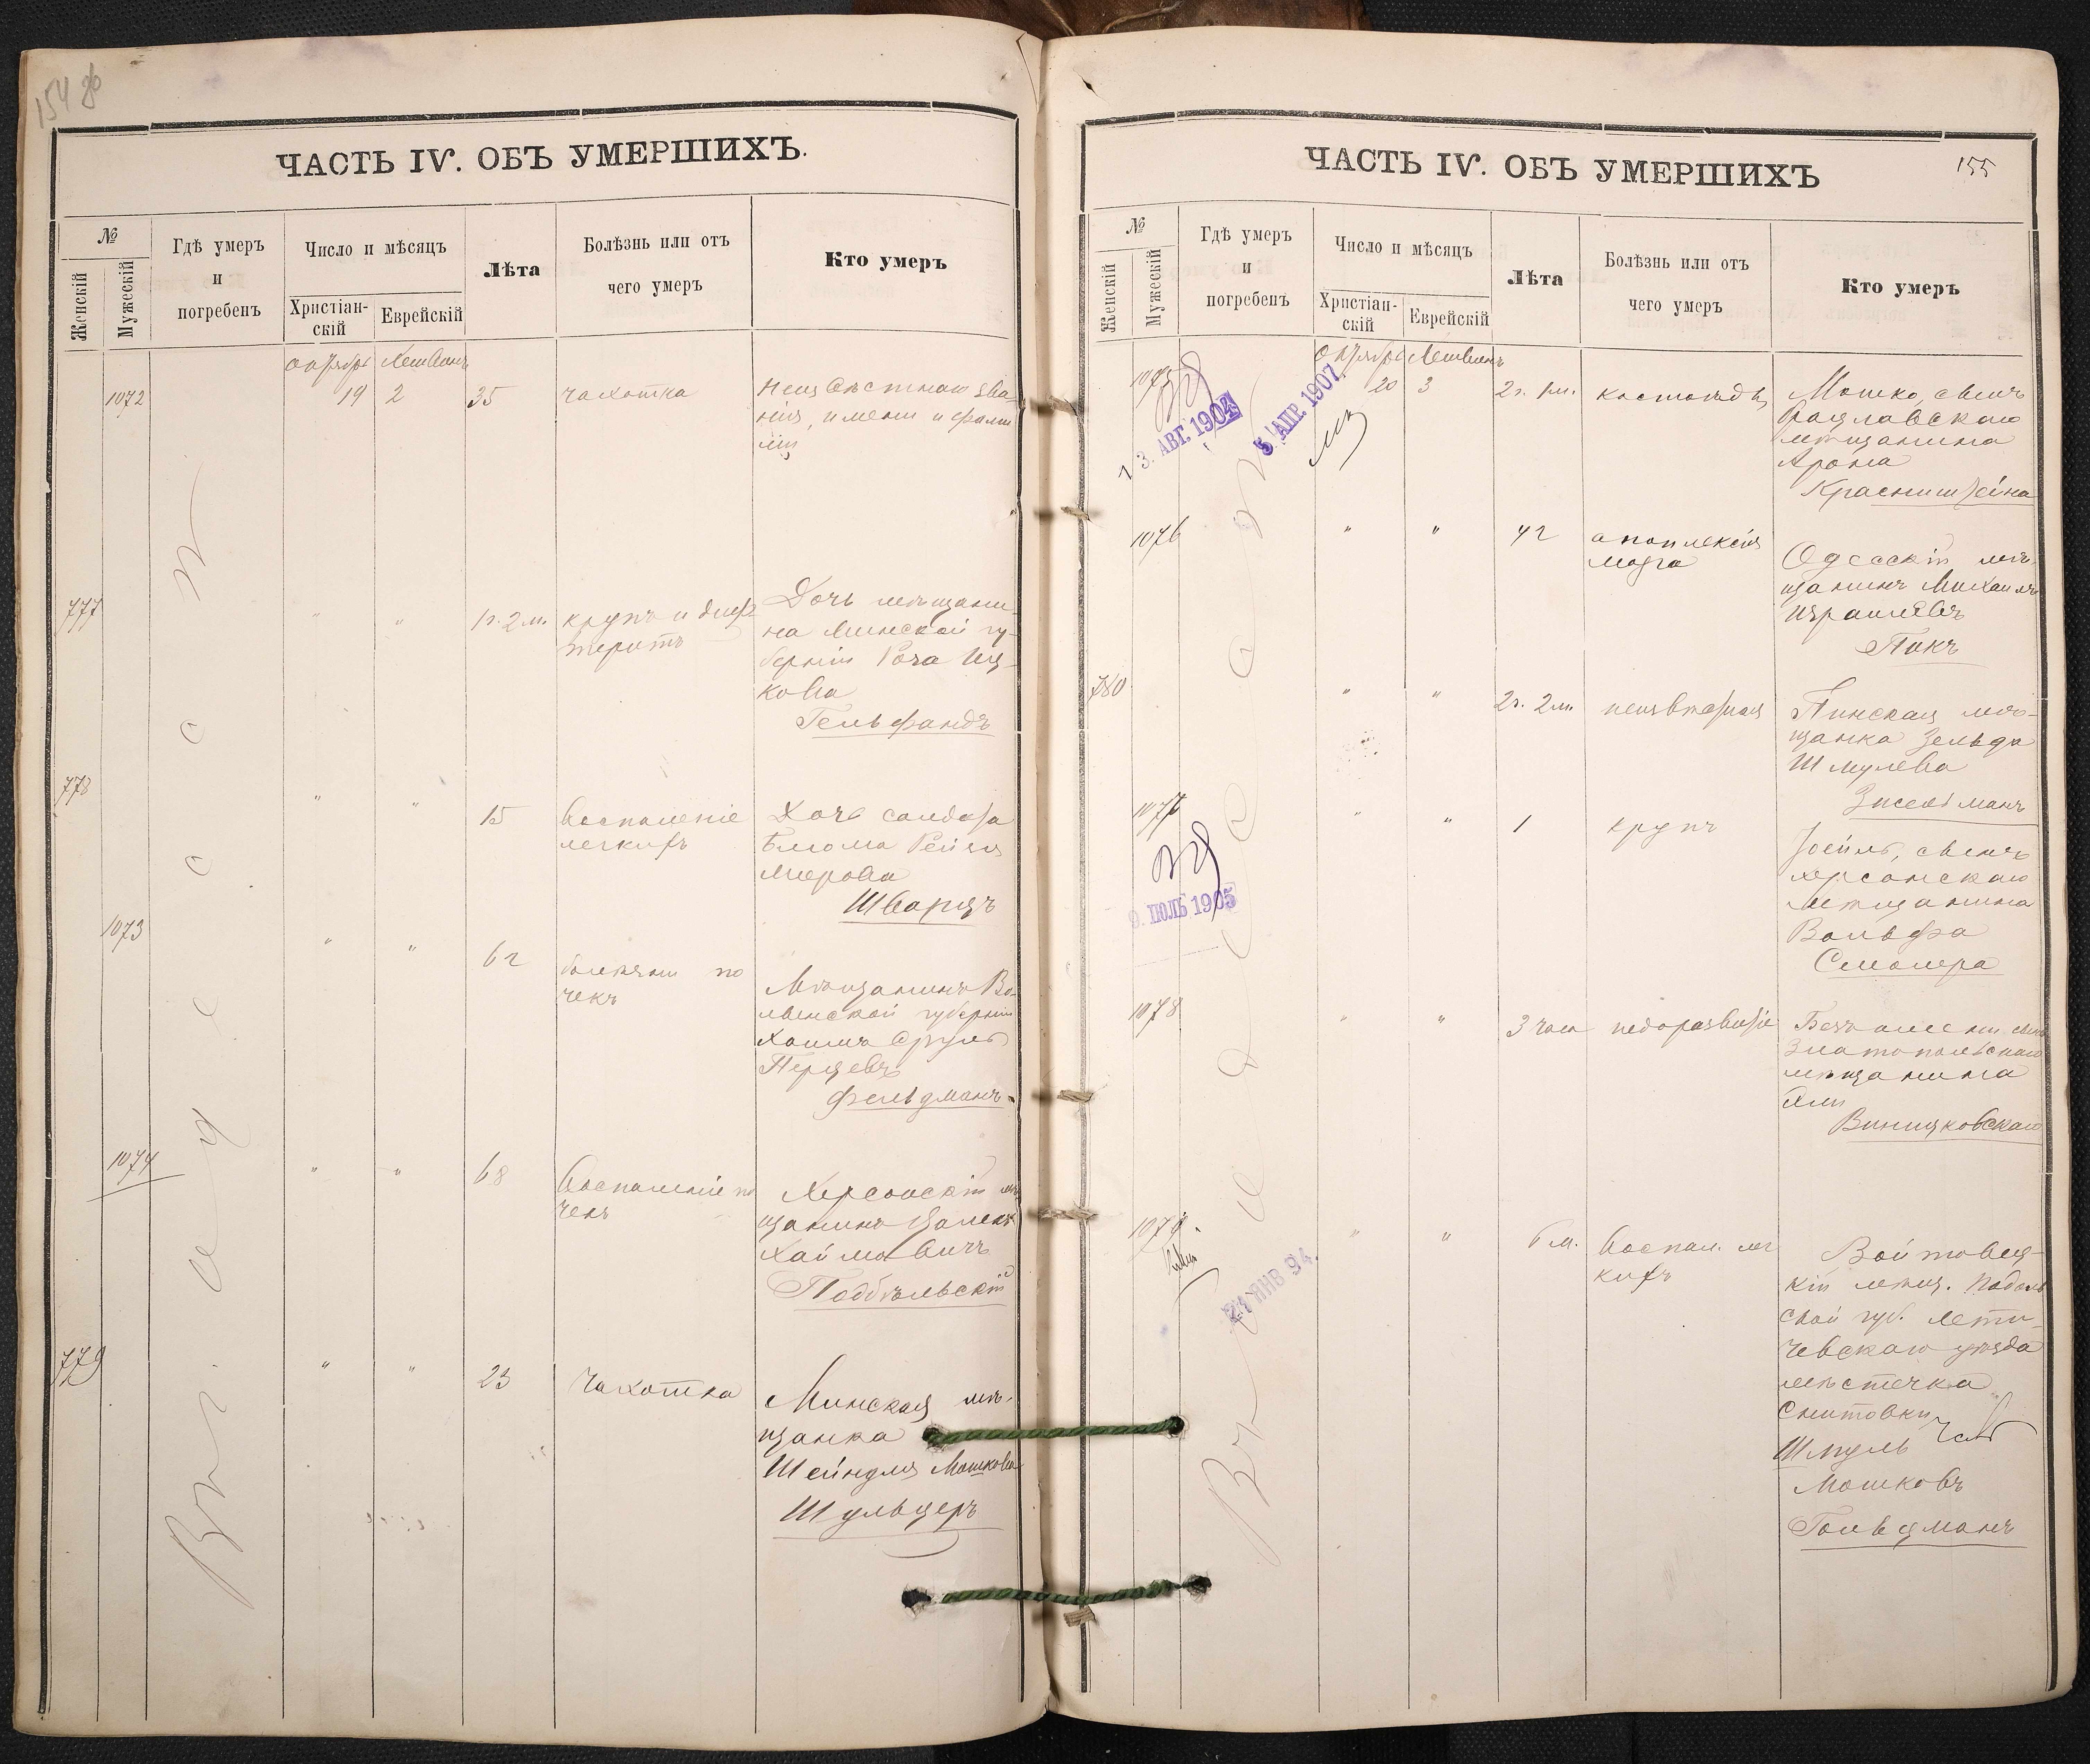 154 об
ЧАСТЬ IV. ОБЪ УМЕРШИХЪ.
№
Женскій
Мужескій
Гдѣ умеръ
и
погребенъ
Число и мѣсяцъ
Христіан-
скій
Еврейскій
Лѣта
Болѣзнь или отъ
чего умеръ
Кто умеръ
Въ Одессѣ
октябрь Хешванъ
1072 19 2 35 чахотка
Неизвѣстнаго зва-
нія, имени и фами
ліи
777 " " 1г. 2м. крупъ и диф
теритъ
Дочь мѣщани-
на Минской гу-
берніи Роза Иц-
кова
Гельфандъ
778 " " 15 Воспаленіе
легкихъ
Дочь солдата
Блюма Рейзя
Меерова
Шварцъ
1073 " " 62 болѣзни по
чекъ
Мѣщанинъ Во-
лынской губерніи
Хаимъ Сруль
Перцевъ
Фельдманъ.
1074 " " 68 Воспаленіе по
чекъ
Херсонскій мѣ
щанинъ
Хаимовичъ
Поддѣльскій
779 " " 23 Чахотка
Минская мѣ-
щанка
Шейндля Мошкова
Шульцеръ
155
ЧАСТЬ IV. ОБЪ УМЕРШИХЪ
№
Женскій
Мужескій
Гдѣ умеръ
и
погребенъ
Число и мѣсяцъ
Христіан-
скій
Еврейскій
Лѣта
Болѣзнь или отъ
чего умеръ
Кто умеръ
Въ Одессѣ
октябрь Хешванъ
1075 20 3 2г. 1м. костоѣда
3. АВГ. 1904
5. АПР. 1907
Мошко, сынъ
Брацлавскаго
мѣщанина
Арона
Красинштейна
1076 " " 42 апоплексія
мозга
Одесскій мѣ-
щанинъ Михаилъ
Израилевъ
Пикъ
780 " " 2г. 2м. неизвѣстная
Пинская мѣ-
щанка Зельда
Шмулева
Зисельманъ
1077 " " 1 крупъ
9. ІЮЛЬ 1905
Іосилъ, сынъ
херсонскаго
мѣщанина
Вольфа
Смолера
1078 " " 3 часа недоразвитіе
Безъ имени сынъ
Златопольскаго
мѣщанина
Винницковскаго
1079. " " 6 м. Воспал. лег
кихъ
24 ЯНВ 94.
Войтовец-
кій мѣщ. Подоль
ской губ. Лети-
чевскаго уѣзда
мѣстечка
Снитовки
Шмуль
Мошковъ
Гольдманъ